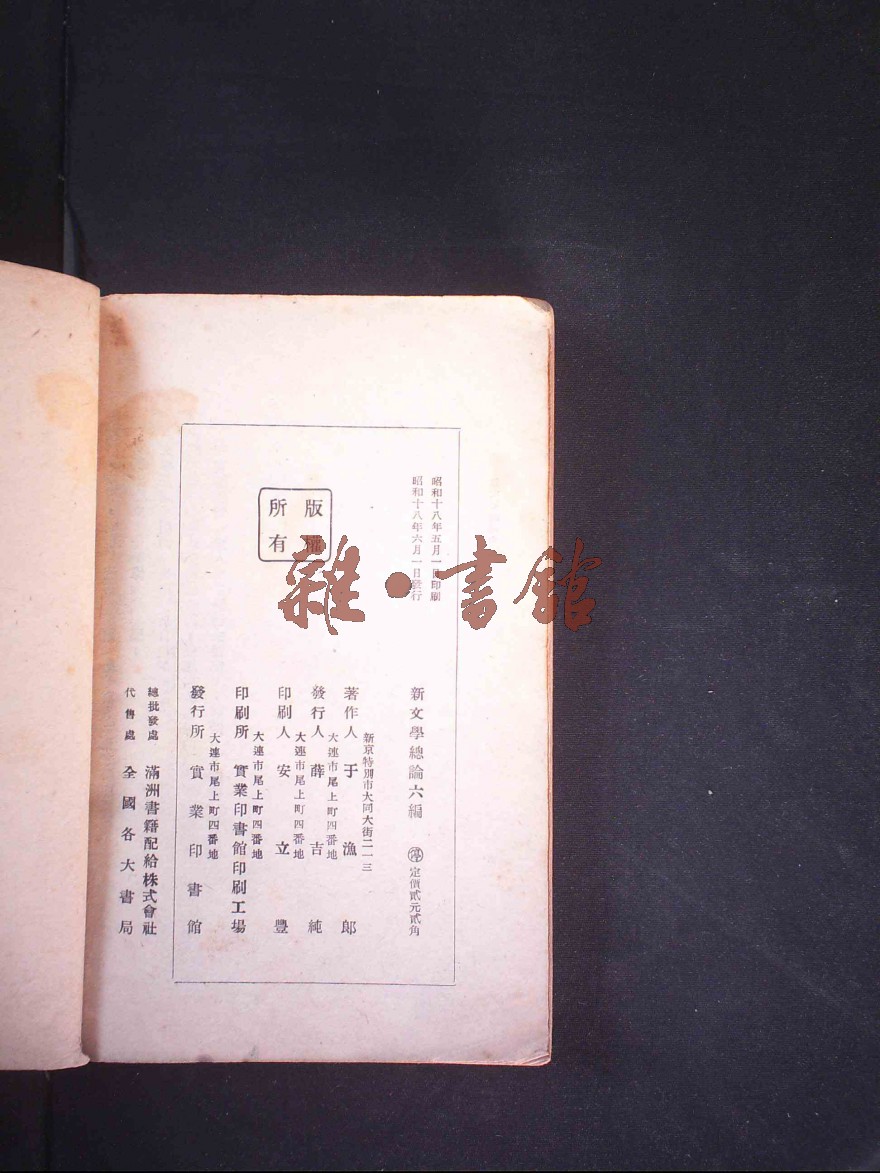 昭和十八年五月一日印刷
昭和十八年六月一日發行
版權
所有
新文學總論六編 定價貳元貳角
新京特別市大同大街二一三
著作人 于漁郎
大連市尾上町四番地
發行人 薛吉純
大連市尾上町四番地
印刷人 安立豐
大連市尾上町四番地
印刷所 實業印書館印刷工場
大連市尾上町四番地
發行所 實業印書館
總批發處 滿洲書籍配給株式會社
代售處 全國各大書局
雜·書館